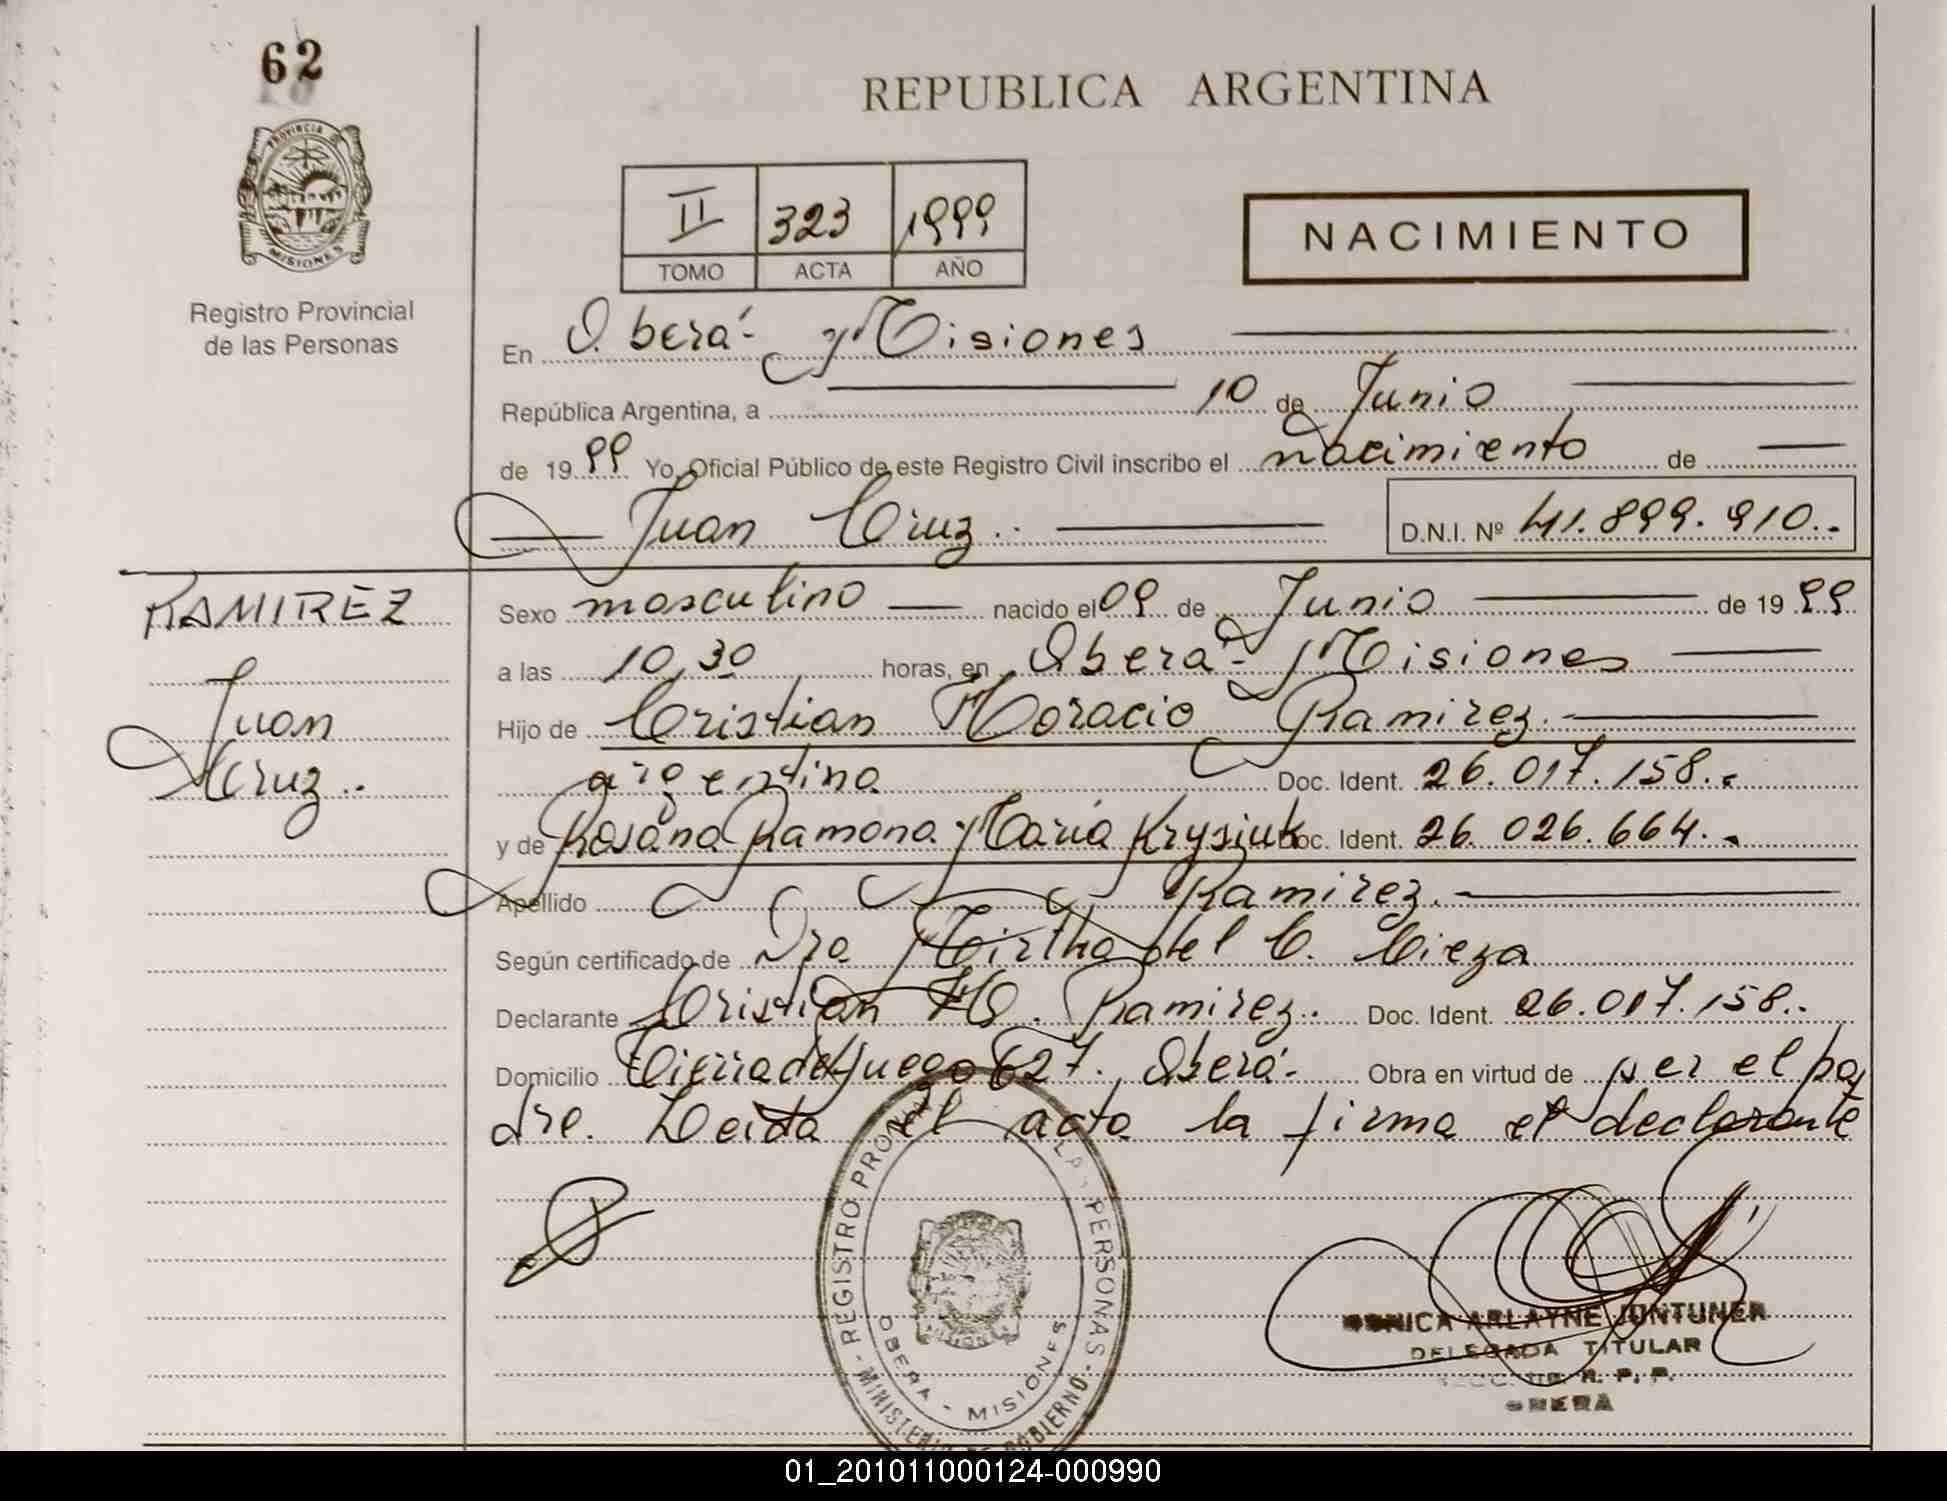 62
PROVINCIA DE
MISIONES
Registro Provincial
de las Personas
REPUBLICA ARGENTINA
II 323 1999
TOMO ACTA AÑO
NACIMIENTO
En Oberá - Misiones
República Argentina, a 10 de Junio
de 1999 Yo, Oficial Público de este Registro Civil inscribo el nacimiento de
Juan Cruz.
D.N.I. Nº 41.899.910..
RAMIREZ
Juan
Cruz..
Sexo masculino nacido el 09 de Junio de 1999
a las 10,30 horas, en Oberá - Misiones
Hijo de Cristian Horacio Ramirez.
argentina Doc. Ident. 26.017.158..
y de Rosana Ramona María Krysiuk Doc. Ident. 26.026.664..
Apellido Ramirez.
Según certificado de Dra Mirtha del C. Cieza
Declarante Cristian H. Ramirez.. Doc. Ident. 26.017.158..
Domicilio Tierra del fuego 627. Oberá - Obra en virtud de ser el pa
dre. Leida el acta la firma el declarante
REGISTRO PROVINCIAL LAS PERSONAS
OBERA - MISIONES
MINISTERIO DE GOBIERNO
ARLAYNE JUNTUNEN
DELEGADA TITULAR
R. P. P.
OBERA
01_201011000124-000990